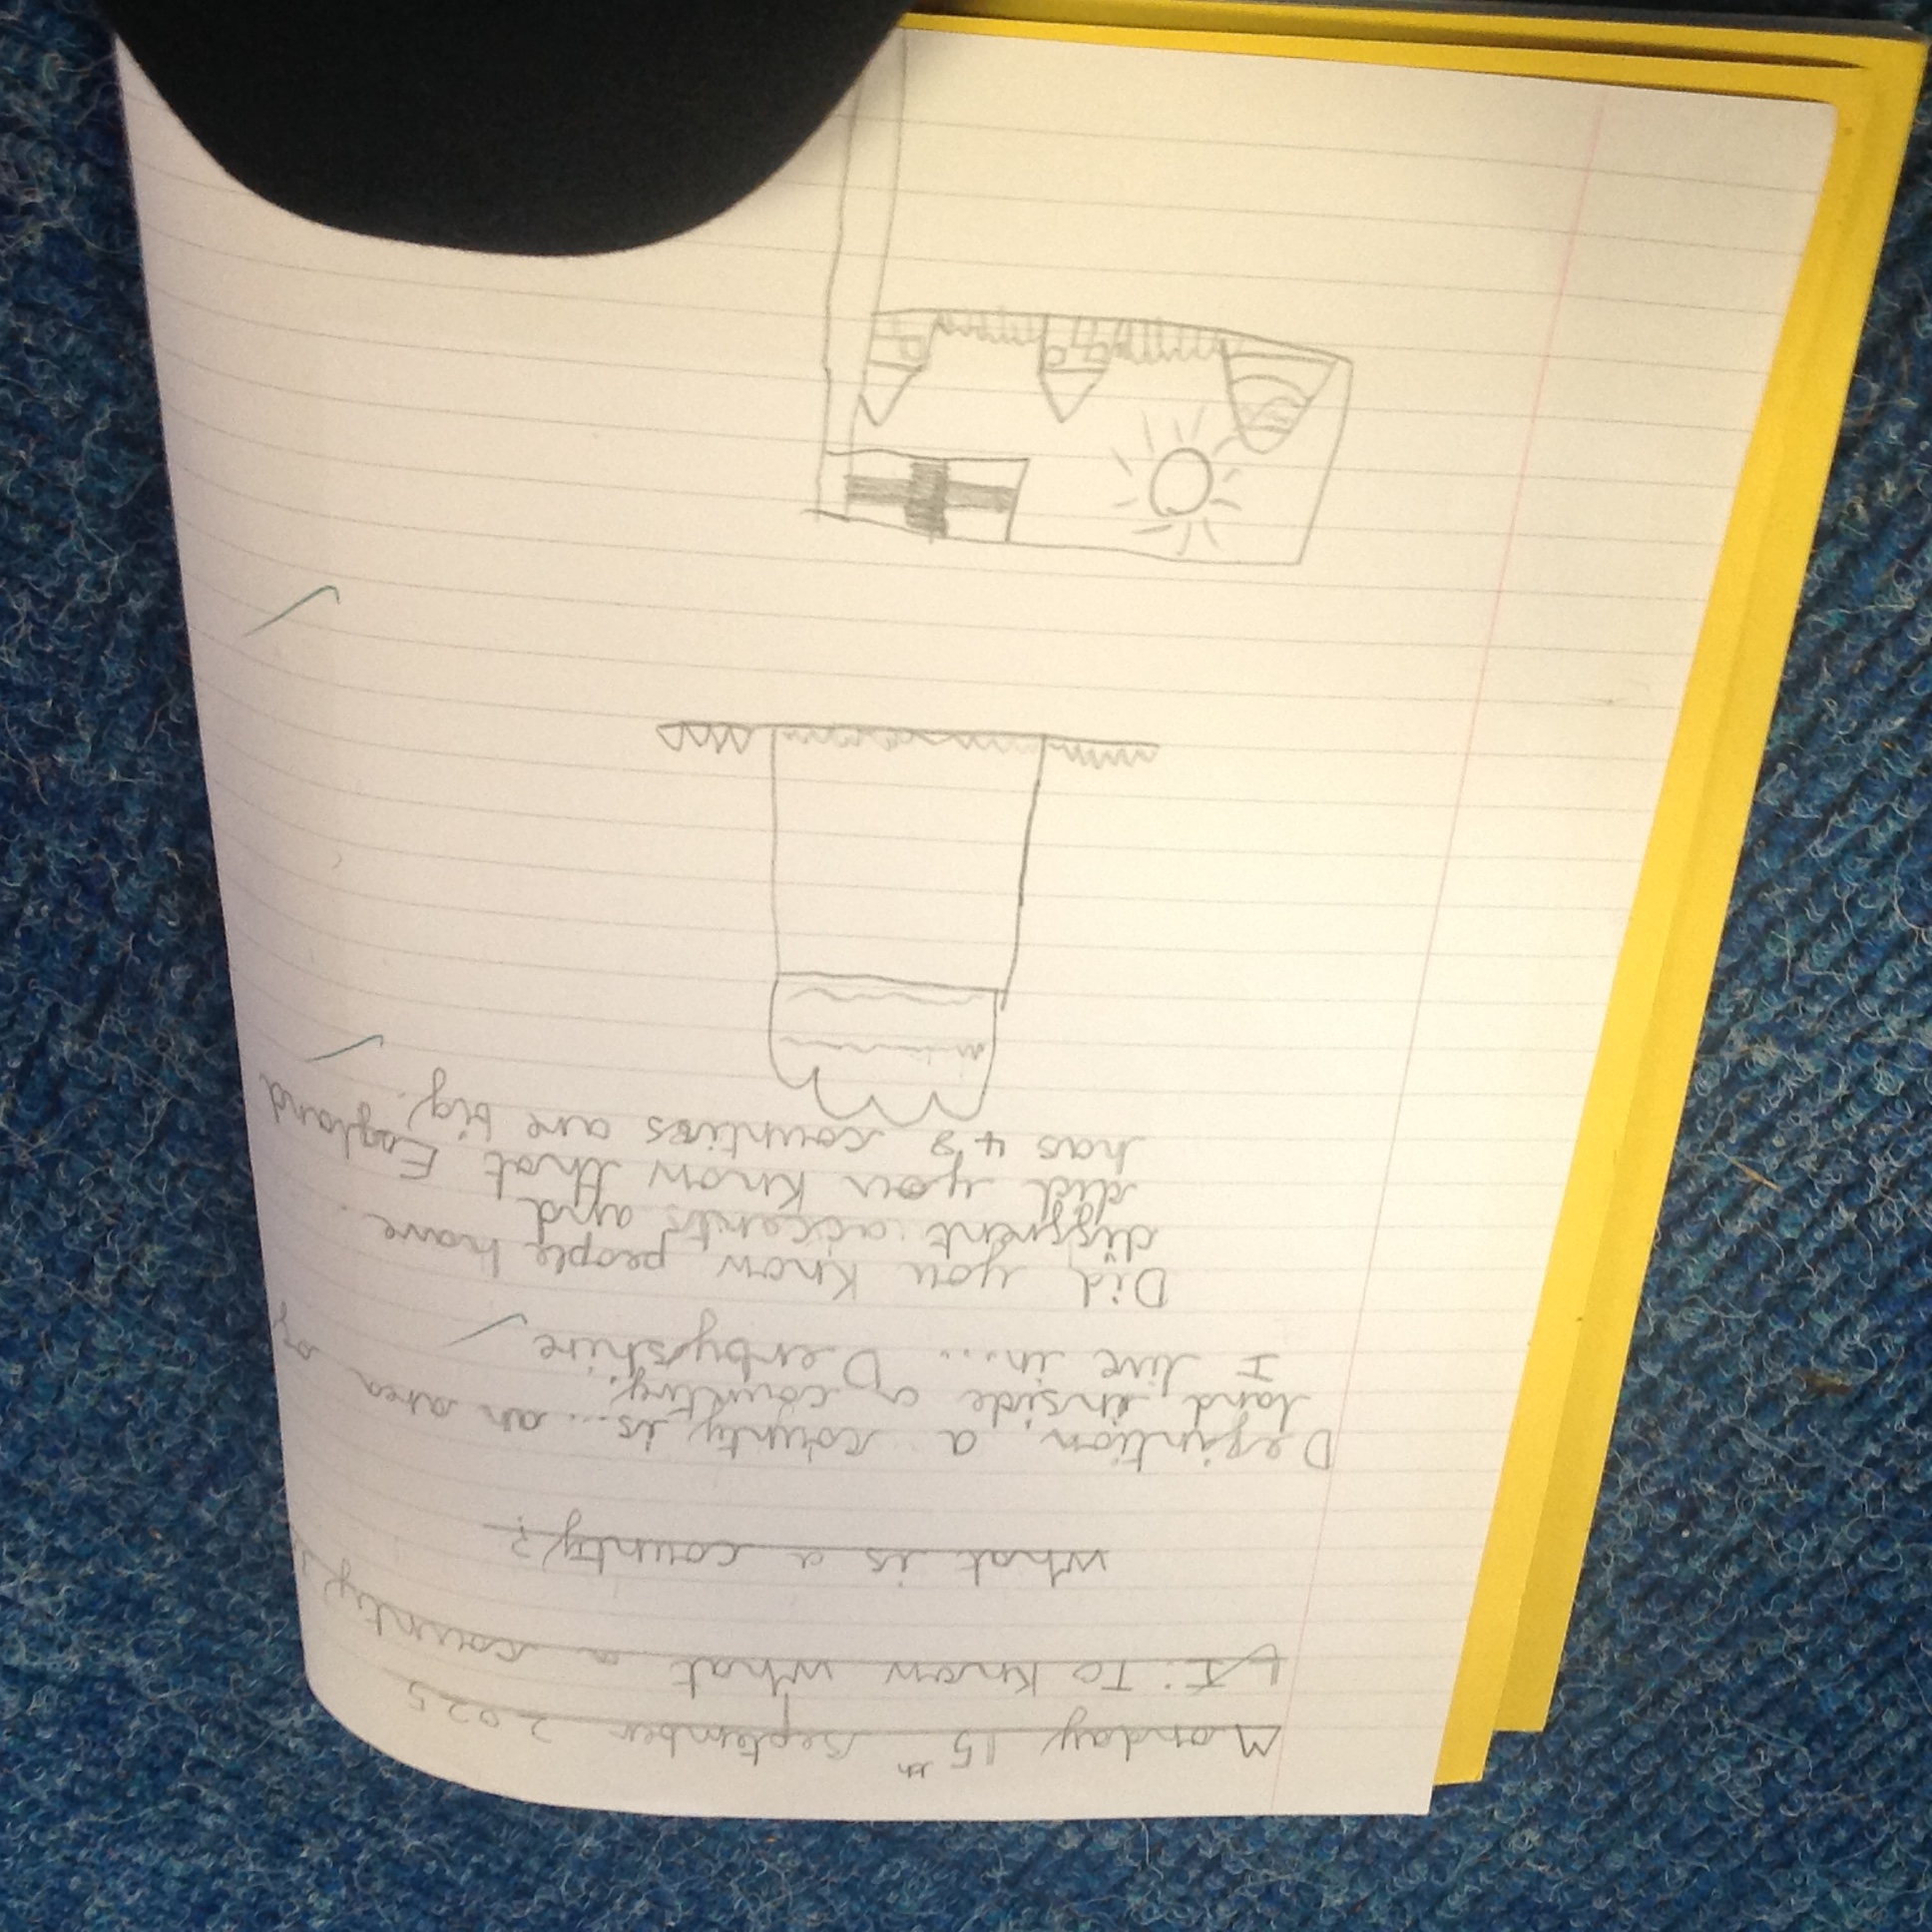 Monday 15th September 2025
LI: To know what a county
what is a county?
Defintion, a county is... an area of
land inside a country.
I live in... Derbyshire
Did you know people have
diffrent accents and
did you know that England
has 48 counties are big.